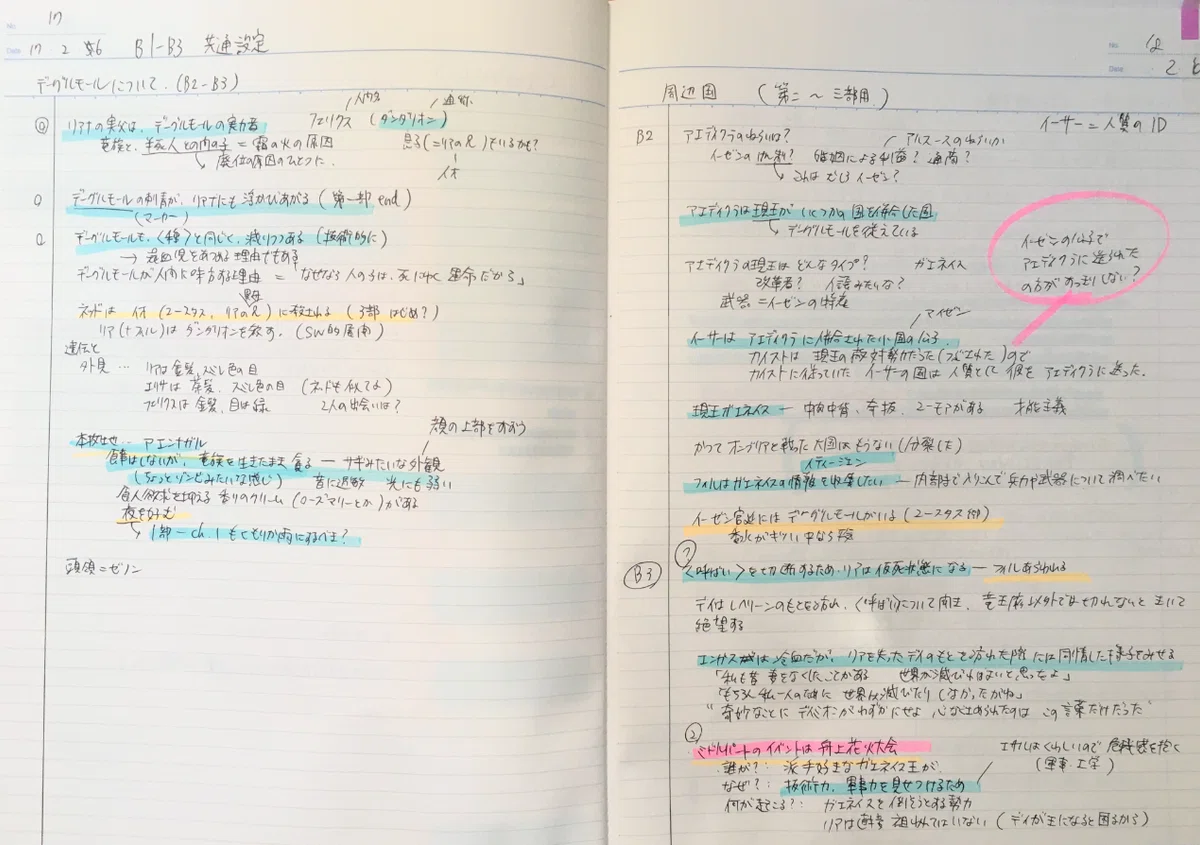 No. 17
Date 17 2 6 B1-B3 共通設定
デーグルモールについて.(B2-B3)
人間名 通称
リアナの実父は、デーグルモールの実力者 フェリクス (ダンダリオン)
竜族と、半死人との間の子 = 霜の火の原因 息子(=リアの兄)でいるかも?
廃位の原因のひとつに. イオ
デーグルモールの刺青が、リアナにも浮かびあがる (第一部 end)
(マーカー)
デーグルモールも、〈種〉と同じく、減りつつある (技術的に)
→ 混血児をあつめる理由でもある
デーグルモールが人間に味方する理由 = 「なぜなら人の子は、死にゆく運命だから」
異母
ネッドは イオ (ユースタス、リアの兄) に殺される (3部 はじめ?)
リア(+フィル)はダンダリオンを殺す. (SW的展開)
遺伝と
外見 … リアは金髪、スミレ色の目
エリサは 茶髪、スミレ色の目 (ネドも似てる)
フェリクスは金髪、目は緑 2人の出会いは?
顔の上部をすっぽり
本拠地… アエンナガル
食事はしないが、竜族を生きたまま食る — サギみたいな外観
(ちょっとゾンビみたいな感じ) 音に過敏 光にも弱い
食人欲求を抑える 香りのクリーム (ローズマリーとか) がある
夜を好む
→ 1部 - ch.1 もくもりか雨にするべき?
頭領 = ゼノン
No. 18
Date 2 6
周辺国 (第二 〜 三部用)
イーサー = 人質の ID
B2 アエディクラのねらいは? アルスースのねらいか
イーゼンの 婚姻による利益? 通商?
これは むしろ イーゼン?
アエディクラは現王が いくつかの国を併合した国
デーグルモールを従えている
イーゼンの公子で
アエディクラに送られた
の方がすっきりしない?
アエディクラの現王は どんなタイプ? ガエネイス
改革者? 信長みたいな?
武器 = イーゼンの特産
アイゼン
イーサーは アエディクラに併合された小国の公子.
カイストは 現王の敵対勢力だった(つぶされた)ので
カイストに従っていた イーサーの国は人質として 彼を アエディクラに送った.
現王ガエネイス — 中肉中背、奇抜、ユーモアがある 才能主義
かつて オンブリアと戦った 大国はもうない (分裂した)
イティージエン
フィルはガエネイスの情報を収集したい — 内部まで入りこんで 兵力や武器について調べたい
イーゼン宮廷には デーグルモールがいる (ユースタス卿)
香水がキツい 中なら 薬
B3 ? 〈呼ばい〉を切断するため、リアは仮死状態になる — フィルあらわれる
デイはレベリーンのもとを訪れ、〈呼ばい〉について聞き、竜王府以外では切れないと聞いて
絶望する
エンガス卿は冷血だが、リアを失ったデイのもとを訪れた際には同情した様子をみせる
「私も昔 妻をなくしたことがある 世界が滅びればよいと思ったよ」
「もちろん 私一人のために 世界は滅びたりしなかったがね」
"奇妙なことに デイミオンがわずかにせよ 心なぐさめられたのは この言葉だけだった"
② ミドルパートのイベントは 舟上花火大会 エサルはくわしいので 危機感を抱く
(軍事・工学)
誰が?: 派手好きなガエネイス王が
なぜ?: 技術力、軍事力を見せつけるため
何が起こる?: ガエネイスを倒そうとする勢力
リアは 狙われてはいない (デイが王になると困るから)